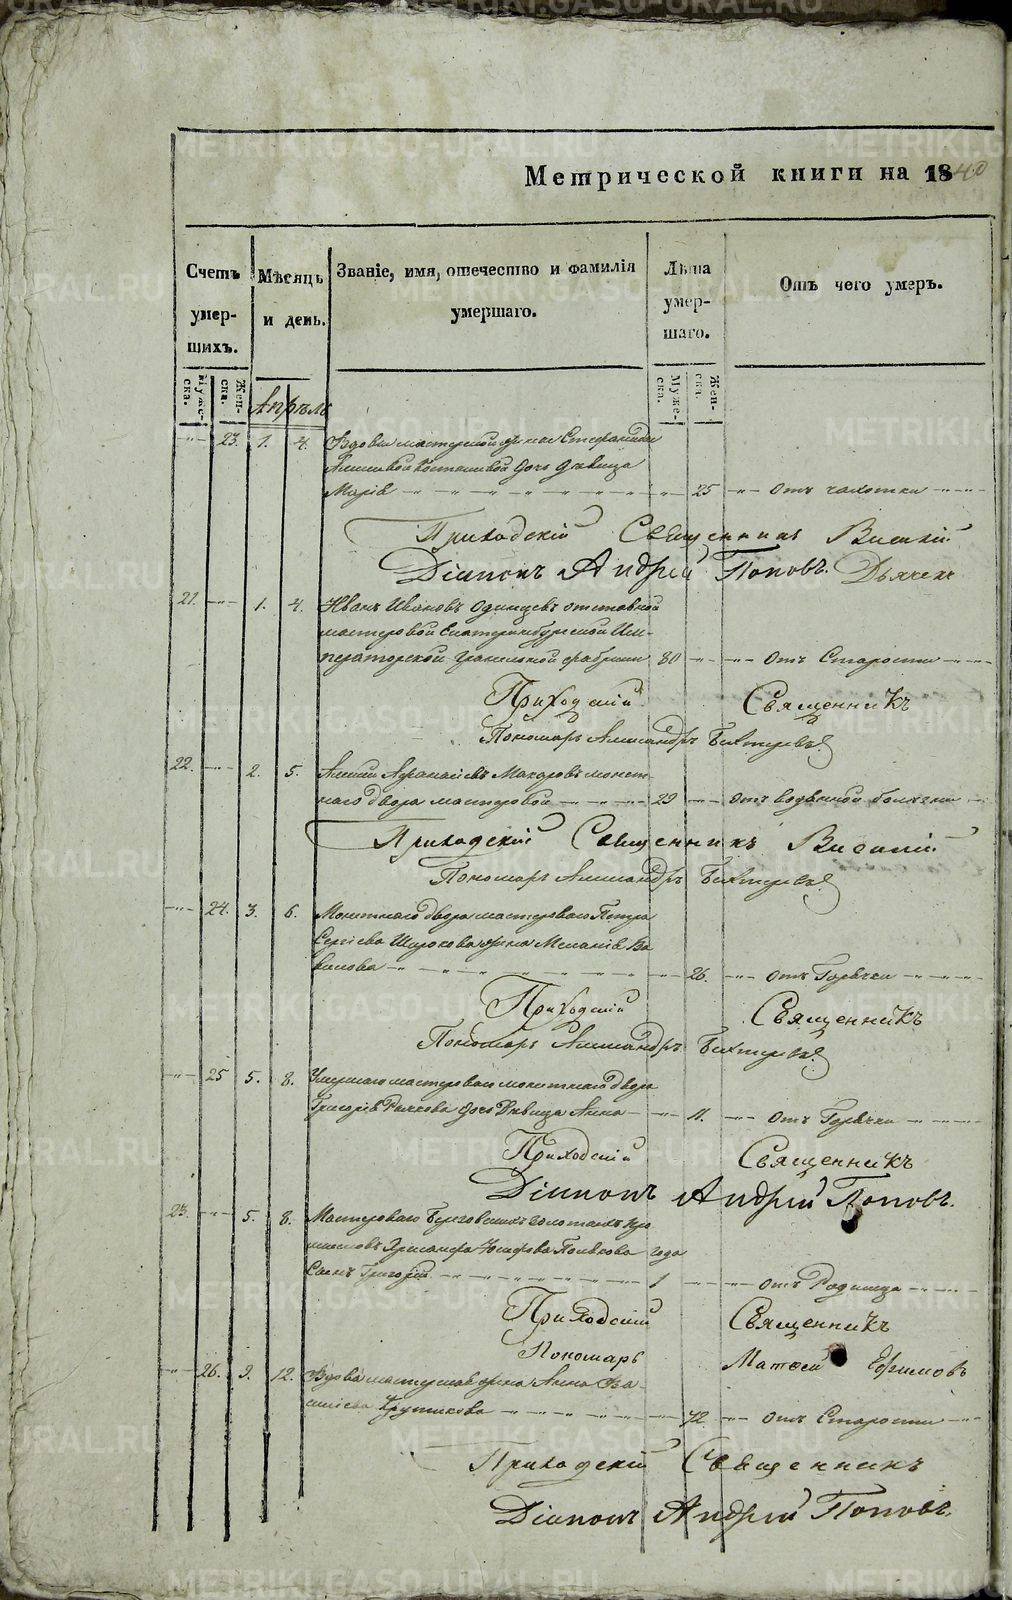 Метрической книги на 1840
Счетъ умер- шихъ.
Мѣсяцъ и день.
Званіе, имя, отечество и фамилія умершаго.
Лѣта умер- шаго.
Отъ чего умеръ.
Муже- ска.
Жен- ска.
Муже- ска.
Жен- ска.
Апрѣль
23. 1. 4. Вдовы мастерской жены Стефаниды
дочь дѣвица
Марія 25 отъ чахотки
Приходскій Священникъ
Діаконъ Андрей Поповъ. Дьячекъ
21. 1. 4. Иванъ Ивановъ Одинцевъ отставной
мастеровой Екатеринбургской Им-
ператорской гранильной фабрики 80 отъ Старости
Приходскій Священникъ
Пономарь Александръ
22. 2. 5. Афанасіевъ Макаровъ монет-
наго двора мастеровой 29 отъ водяной болѣзни
Приходскій Священникъ
Пономарь Александръ
24. 3. 6. Монетнаго двора мастероваго Петра
Сергіева Широкова жена Меланія Ва-
силова 26. отъ Горячки
Приходскій Священникъ
Пономарь Александръ
25 5. 8. Умершаго мастероваго монетнаго двора
Григорія Рычкова дочь дѣвица Анна 11. отъ Горячки
Приходскій Священникъ
Діаконъ Андрей Поповъ.
23. 5. 8. Мастероваго Березовскихъ золотыхъ про
мысловъ Іосифова Полякова года
Сынъ Григорій 1 отъ Родимца
Приходскій Священникъ
Пономарь Матѳей Ефимовъ
26. 9. 12. Вдова мастерская жена Анна Ва-
силіева Крутикова 72 отъ Старости
Приходскій Священникъ
Діаконъ Андрей Поповъ.
METRIKI.GASO-URAL.RU